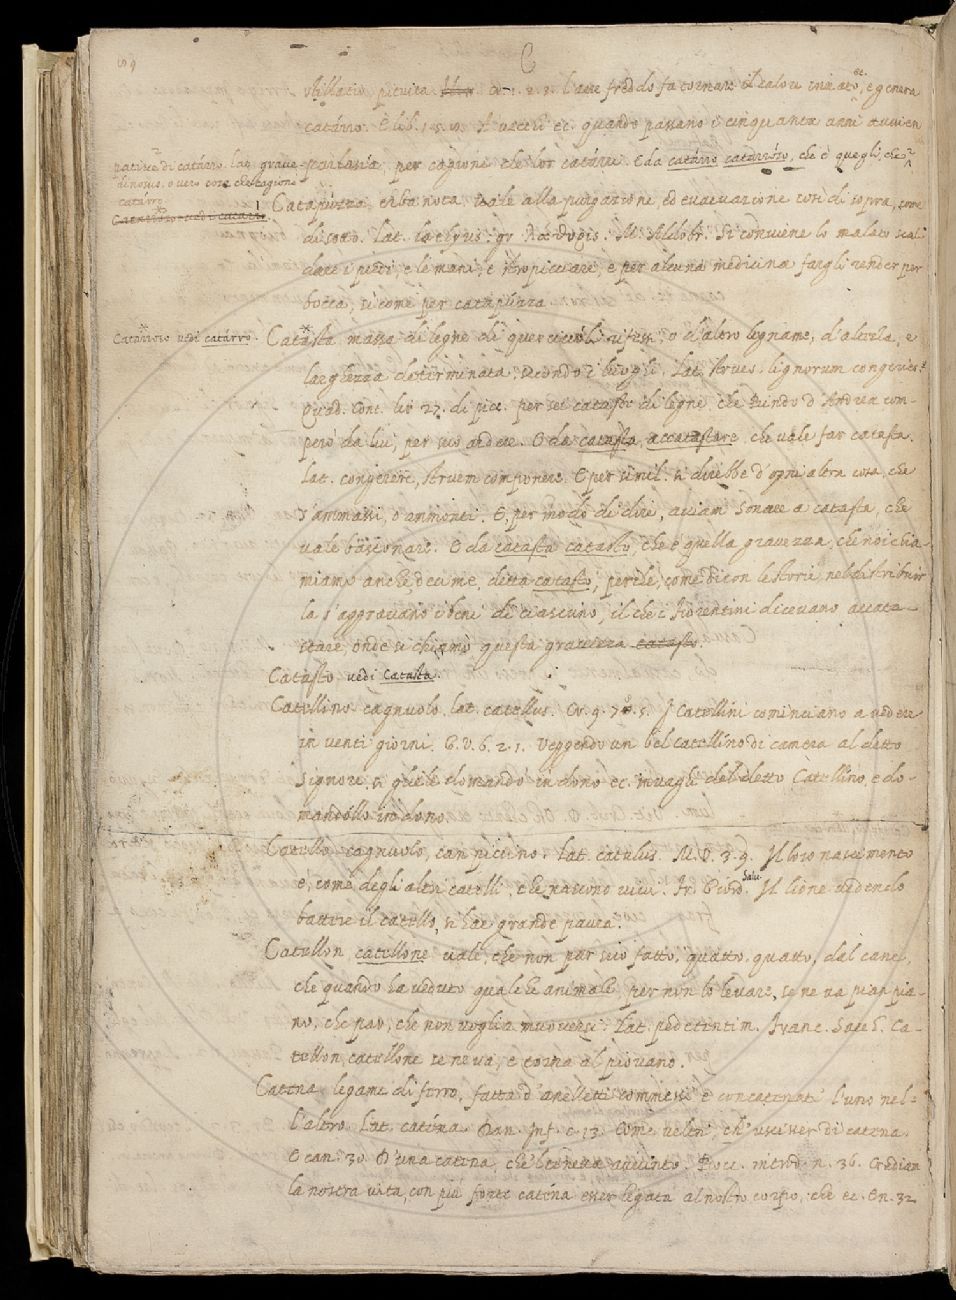 C
stillatio, pituita. Cr. 1. 2. 2. L'aere freddo fa tornare il calore innato, ec. e genera
catárro. E lib. 1. 5. A vecchi ec. quando passano i cinquanta anni avvien
parlasía, per cagione che lor catárri. E da catárro catarróso, che è quegli, che
patisce di catárro. Lat. grave-
dinosus. o vero cosa che cagione
catárro
Catarróso vedi catárro.
Catapúzza, erba nota, vale alla purgazione, ed evacuazione così di sopra, come
di sotto. Lat. lathyris. gr. M. Aldobr. Si conviene lo malato scal
dare i piedi, e le mani, e stropicciare, e per alcuna medicina fargli render per
bocca, sì come per catapúzza
Catarroso vedi catárro.
Catasta massa di legne di querciuóli rifessi, o d'altro legname, d'altezza, e
larghezza determinata, secondo i luoghi. Lat. strues, lignorum congeries.
Quad. Cont. liv. 27. di picc. per sei cataste di legne, che Guido d'Andrea com-
però da lui, per suo ardere. E da catasta, accatastare, che vale far catasta.
Lat. congerere, struem componere. E per simil. si direbbe d'ogni altra cosa, che
s'ammassi, o ammonti. E, per modo di dire, sonare a catasta, che
vale bastonare. E da catasta catasto, che è quella gravezza, che noi chia-
miamo anche decima, detta catasto, perchè, come dicon le storie nel distribuir
la s'aggravano i beni di ciascuno, il che i Fiorentini dicevano accata-
stare, onde si chiamò questa gravezza catasto.
Catasto vedi Catasta.
Catellíno cagnuolo. lat. catellus. Cr. 9. 78. 5. I Catellini cominciano a vedere
in venti giorni. G. V. 6. 2. 1. Veggendo un bel catellíno di camera al detto
Signore, si gliele domandò in dono ec. invaghì del detto Catellino, e do-
mandóllo in dono.
Catéllo cagnuolo, can piccino. Lat. catulus. M. V. 3. 9. Il loro nascimento
è, come degli altri catelli, che nascono vivi. Fr. Giord. Salv. Il lione vedendo
battere il catello, si hae grande paura.
Catellon, catellone vale, che non par suo fatto, quatto, quatto, dal cane,
che quando ha veduto qualche animale, per non lo levare, se ne va pian pia-
no, che par, che non voglia muoversi. Lat. pedetentim. Franc. Sacch. Ca-
tellon, catellone se ne va, e torna al piovano.
Caténa legame di ferro, fatta d'anelletti commessi e concatenati l'uno nel-
l'altro. Lat. caténa. Dan. Inf. c. 13. Come veltri, ch'uscisser di catena.
E can. 30. D'una catena, che'l teneva avvinto. Bocc. introd. n. 36. Crediam
la nostra vita, con più forte caténa esser legata al nostro corpo, che ec. En. 32